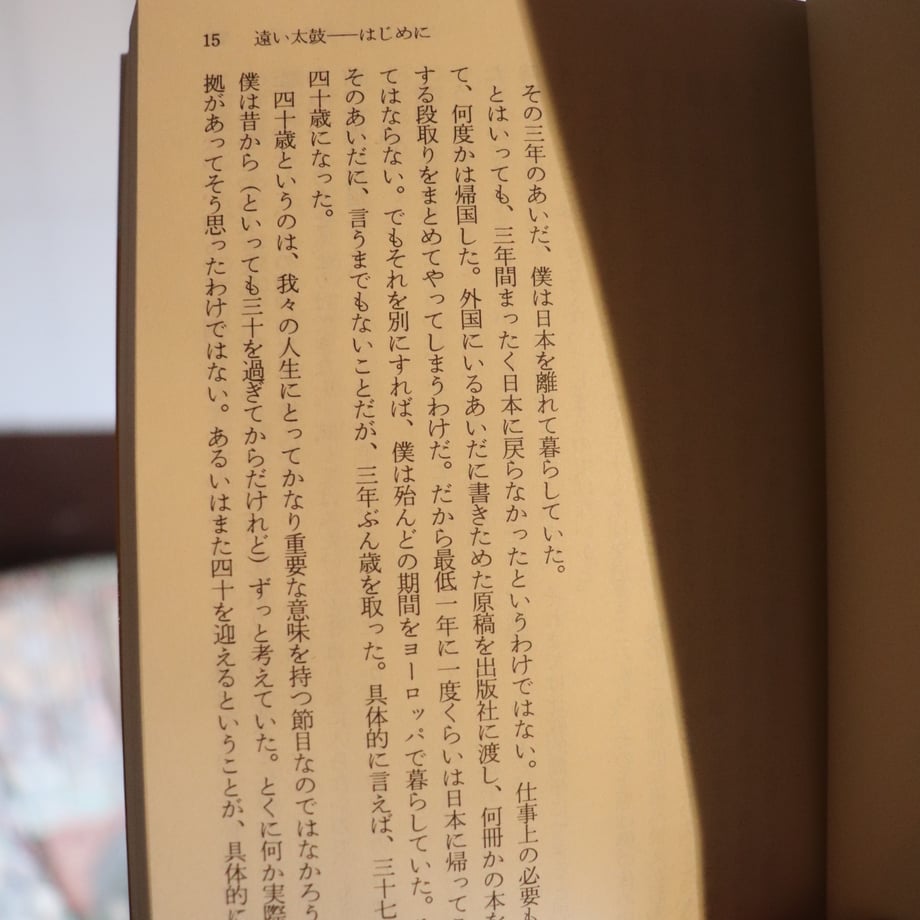 15 遠い太鼓――はじめに
その三年のあいだ、僕は日本を離れて暮らしていた。
とはいっても、三年間まったく日本に戻らなかったというわけではない。仕事上の必要も
て、何度かは帰国した。外国にいるあいだに書きためた原稿を出版社に渡し、何冊かの本を
する段取りをまとめてやってしまうわけだ。だから最低一年に一度くらいは日本に帰って
てはならない。でもそれを別にすれば、僕は殆んどの期間をヨーロッパで暮らしていた。
そのあいだに、言うまでもないことだが、三年ぶん歳を取った。具体的に言えば、三十七
四十歳になった。
四十歳というのは、我々の人生にとってかなり重要な意味を持つ節目なのではなかろう
僕は昔から（といっても三十を過ぎてからだけれど）ずっと考えていた。とくに何か実際
拠があってそう思ったわけではない。あるいはまた四十を迎えるということが、具体的に